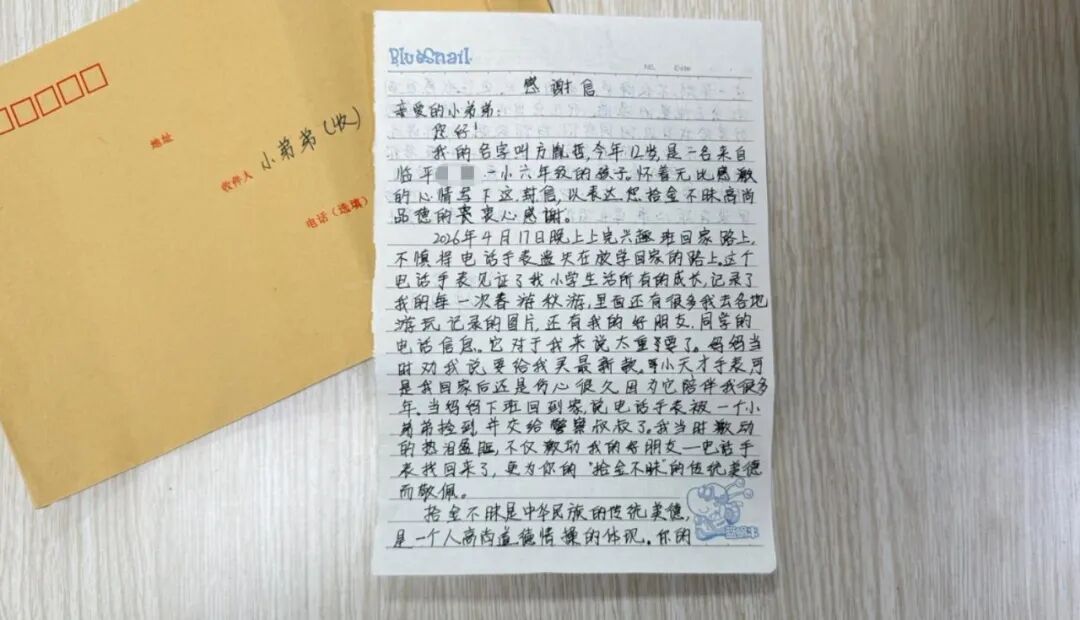 地址
收件人 小弟弟(收)
电话(选填)
BlueSnail
No. Date
感谢信
亲爱的小弟弟:
您好!
我的名字叫方胤哲,今年12岁,是一名来自
临平 一小六年级的孩子,怀着无比感激
的心情写下这封信,以表达您拾金不昧高尚
品德的衷心感谢。
2026年4月17日晚上上完兴趣班回家路上,
不慎将电话手表遗失在放学回家的路上。这个
电话手表见证了我小学生活所有的成长,记录了
我的每一次春游秋游,里面还有很多我去各地
游玩记录的图片,还有我的好朋友、同学的
电话信息。它对于我来说太重要了。妈妈当
时劝我说要给我买最新款小天才手表可
是我回家后还是伤心很久因为它陪伴我很多
年。当妈妈下班回到家,说电话手表被一个小
弟弟捡到并交给警察叔叔了。我当时激动
的热泪盈眶,不仅激动我的好朋友—电话手
表找回来了,更为你的“拾金不昧”的传统美德
而敬佩。
拾金不昧是中华民族的传统美德,
是一个人高尚道德情操的体现。你的
蓝蜗牛